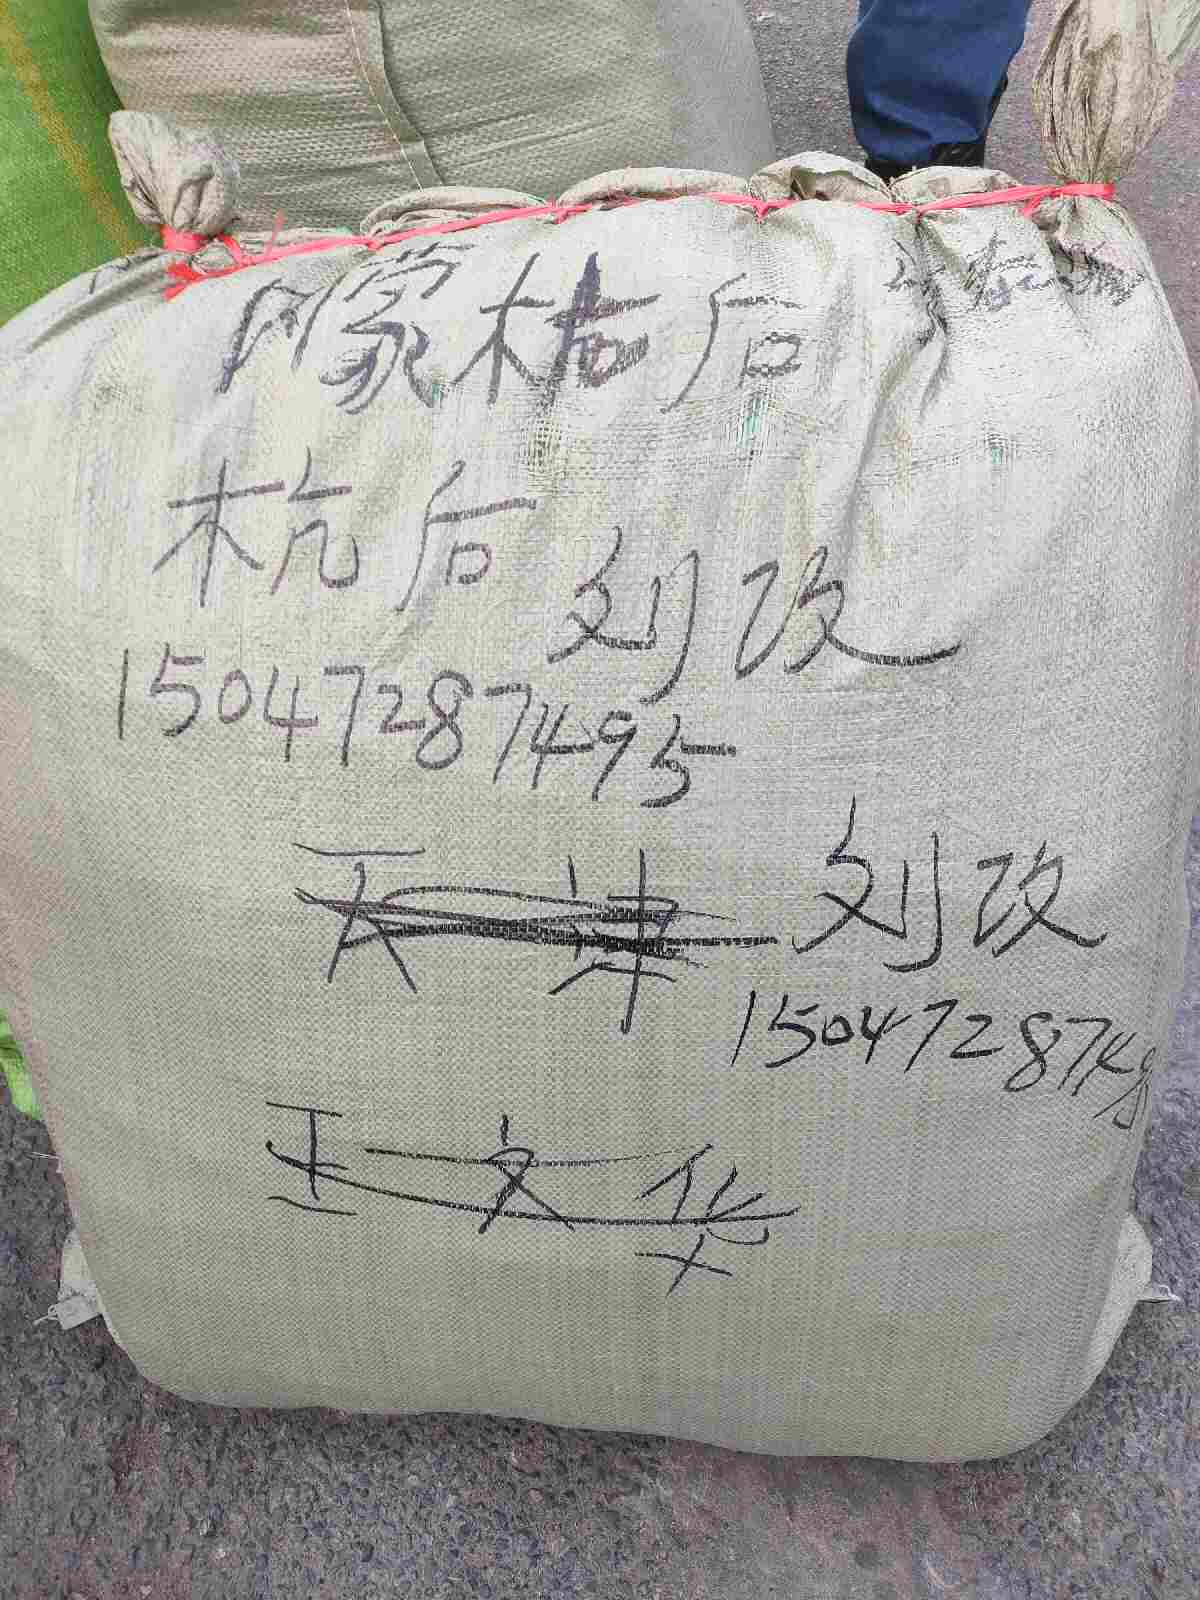 内蒙杭后
杭后
刘改
15047287495
天津
刘改
1504728749
王文华